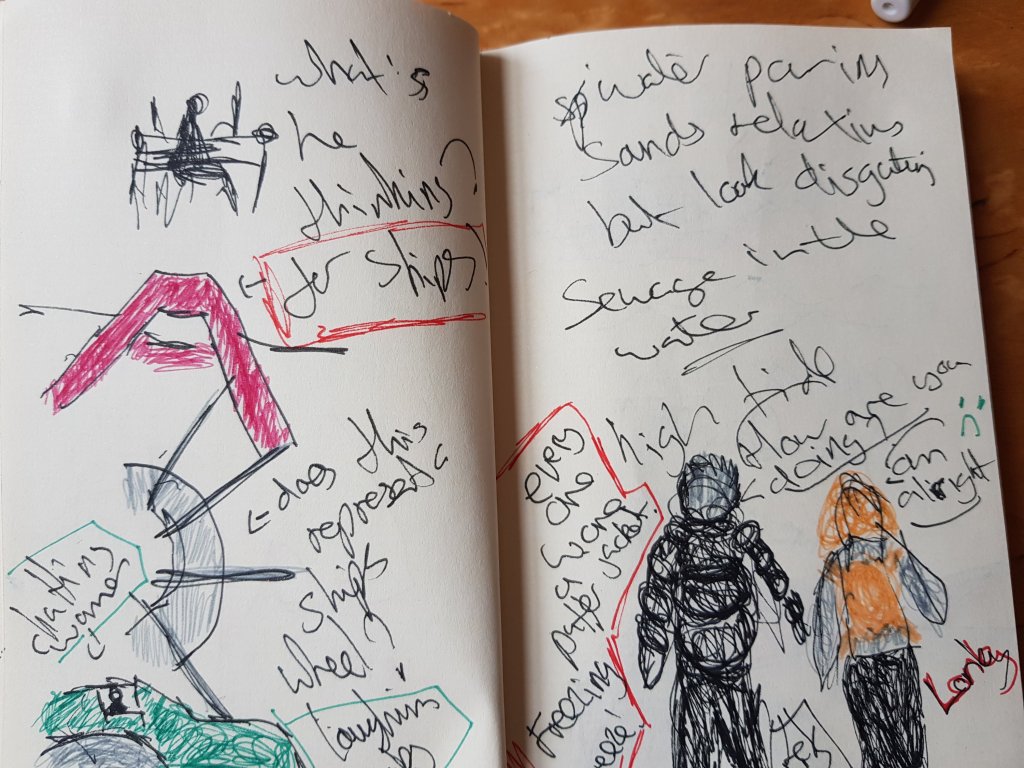 what's
he
thinking?
for ships?
does this
represent a
ships
wheel?
laughing
private
Sands relaxing
but look disgusting
Sewage in the
water
high tide
How are you
doing
am
alright
every
one
wearing a
puffer
jacket!
Freezing